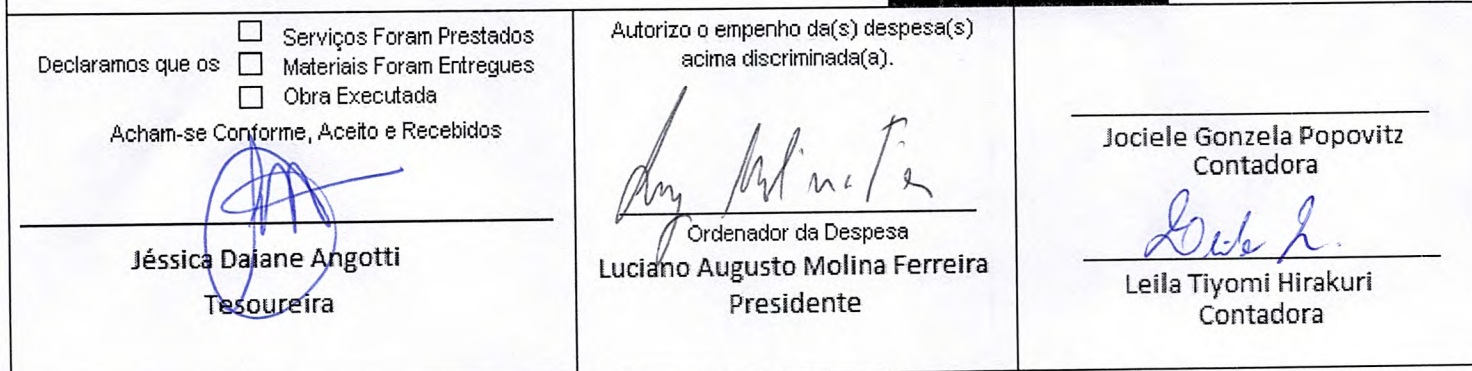 Declaramos que os
Serviços Foram Prestados
Materiais Foram Entregues
Obra Executada
Acham-se Conforme, Aceito e Recebidos
Jéssica Daiane Angotti
Tesoureira
Autorizo o empenho da(s) despesa(s)
acima discriminada(a).
Ordenador da Despesa
Luciano Augusto Molina Ferreira
Presidente
Jociele Gonzela Popovitz
Contadora
Leila Tiyomi Hirakuri
Contadora